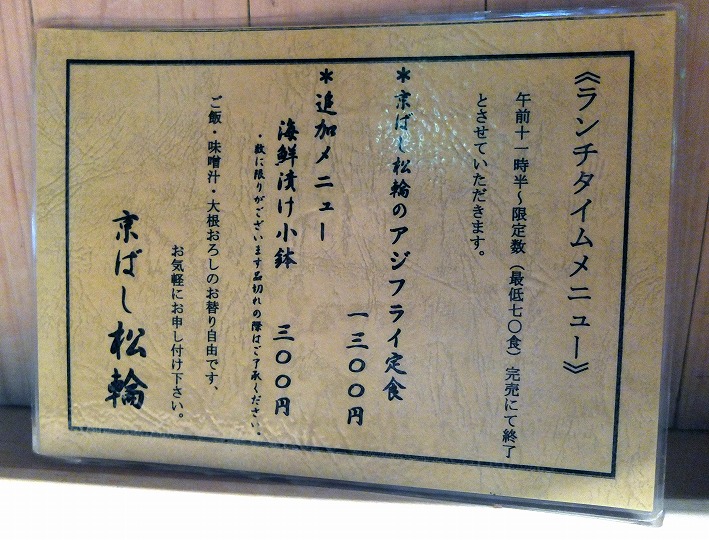 《ランチタイムメニュー》
午前十一時半～限定数（最低七〇食）完売にて終了
とさせていただきます。
＊京ばし松輪のアジフライ定食
一三〇〇円
＊追加メニュー
海鮮漬け小鉢 三〇〇円
・数に限りがございます品切れの際はご了承ください。
ご飯・味噌汁・大根おろしのお替り自由です、
お気軽にお申し付け下さい。
京ばし松輪